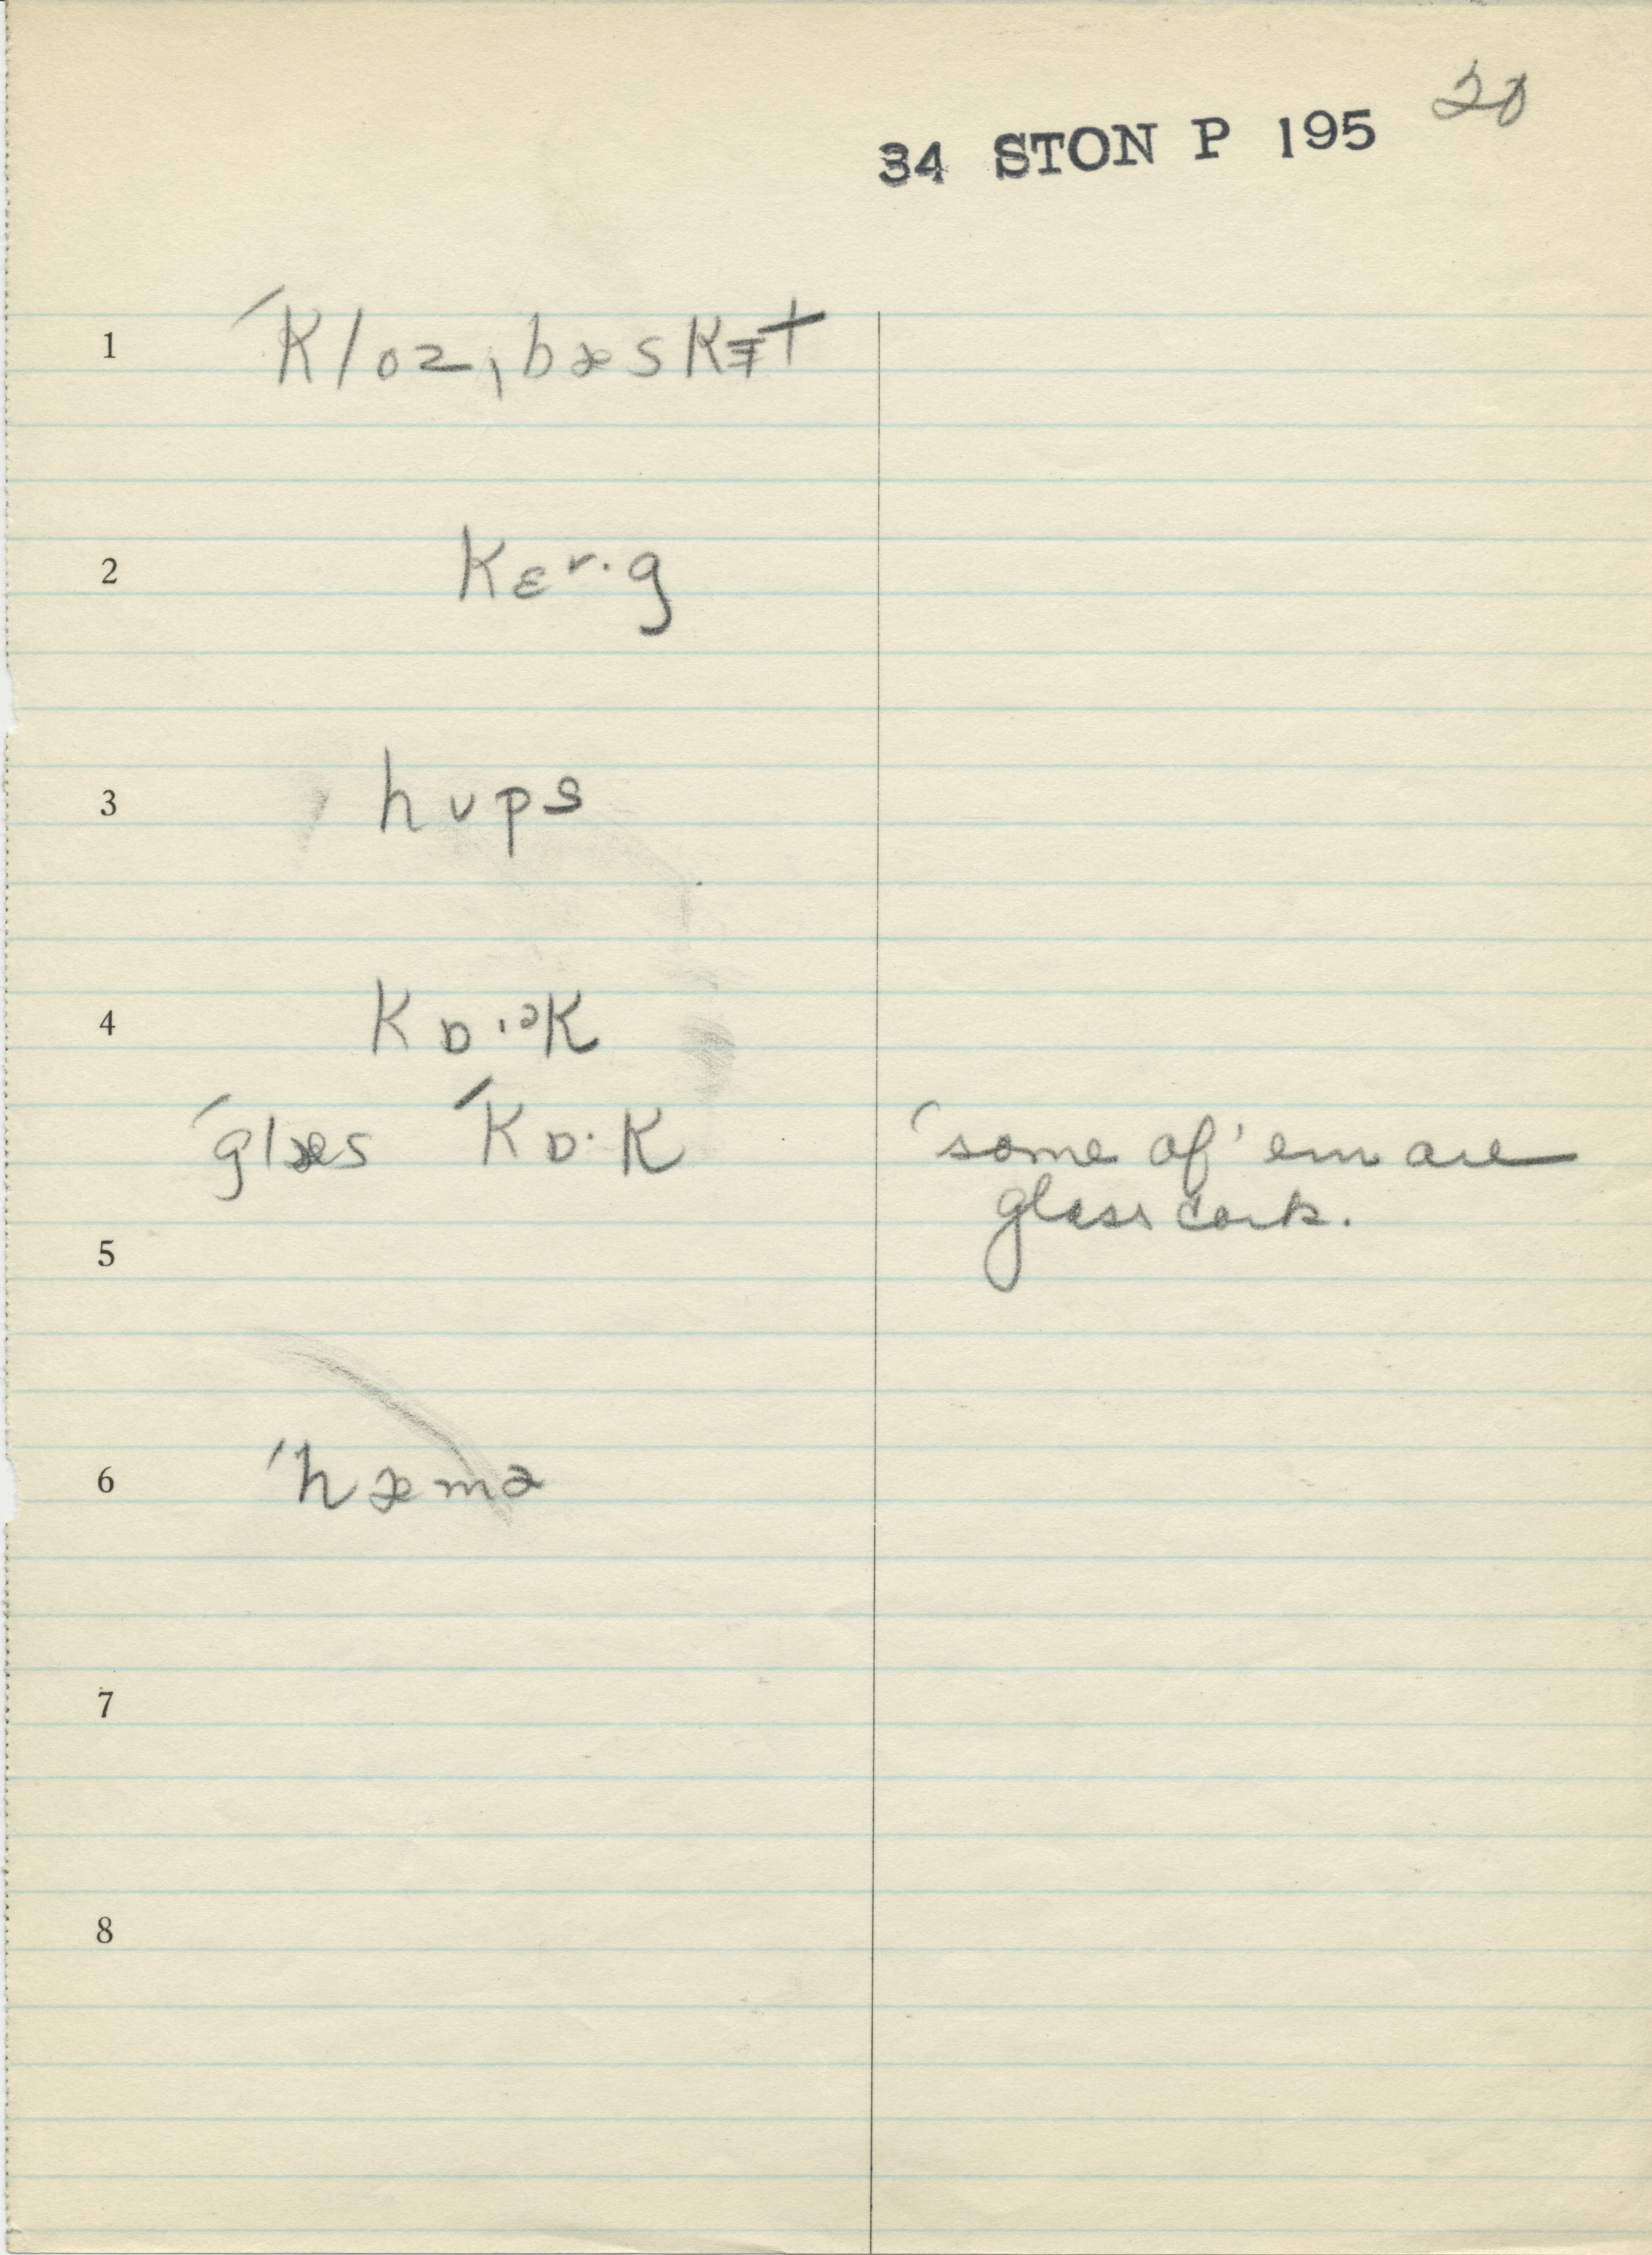 34 STON P 195 20
1 ˈkloz ˌbæskɪ̵t
2 kɛʳ·g
3 hʊps
4 kɒ·ɪᵊk
ˈglæs ˈkɒ·k 'some of 'em are
glass cork.
5
6 ˈhæmə
7
8